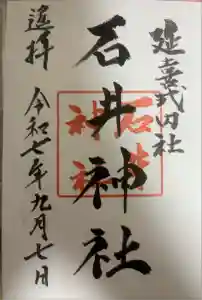 延喜式内社
石井神社
石井神社
遥拝
令和七年九月七日